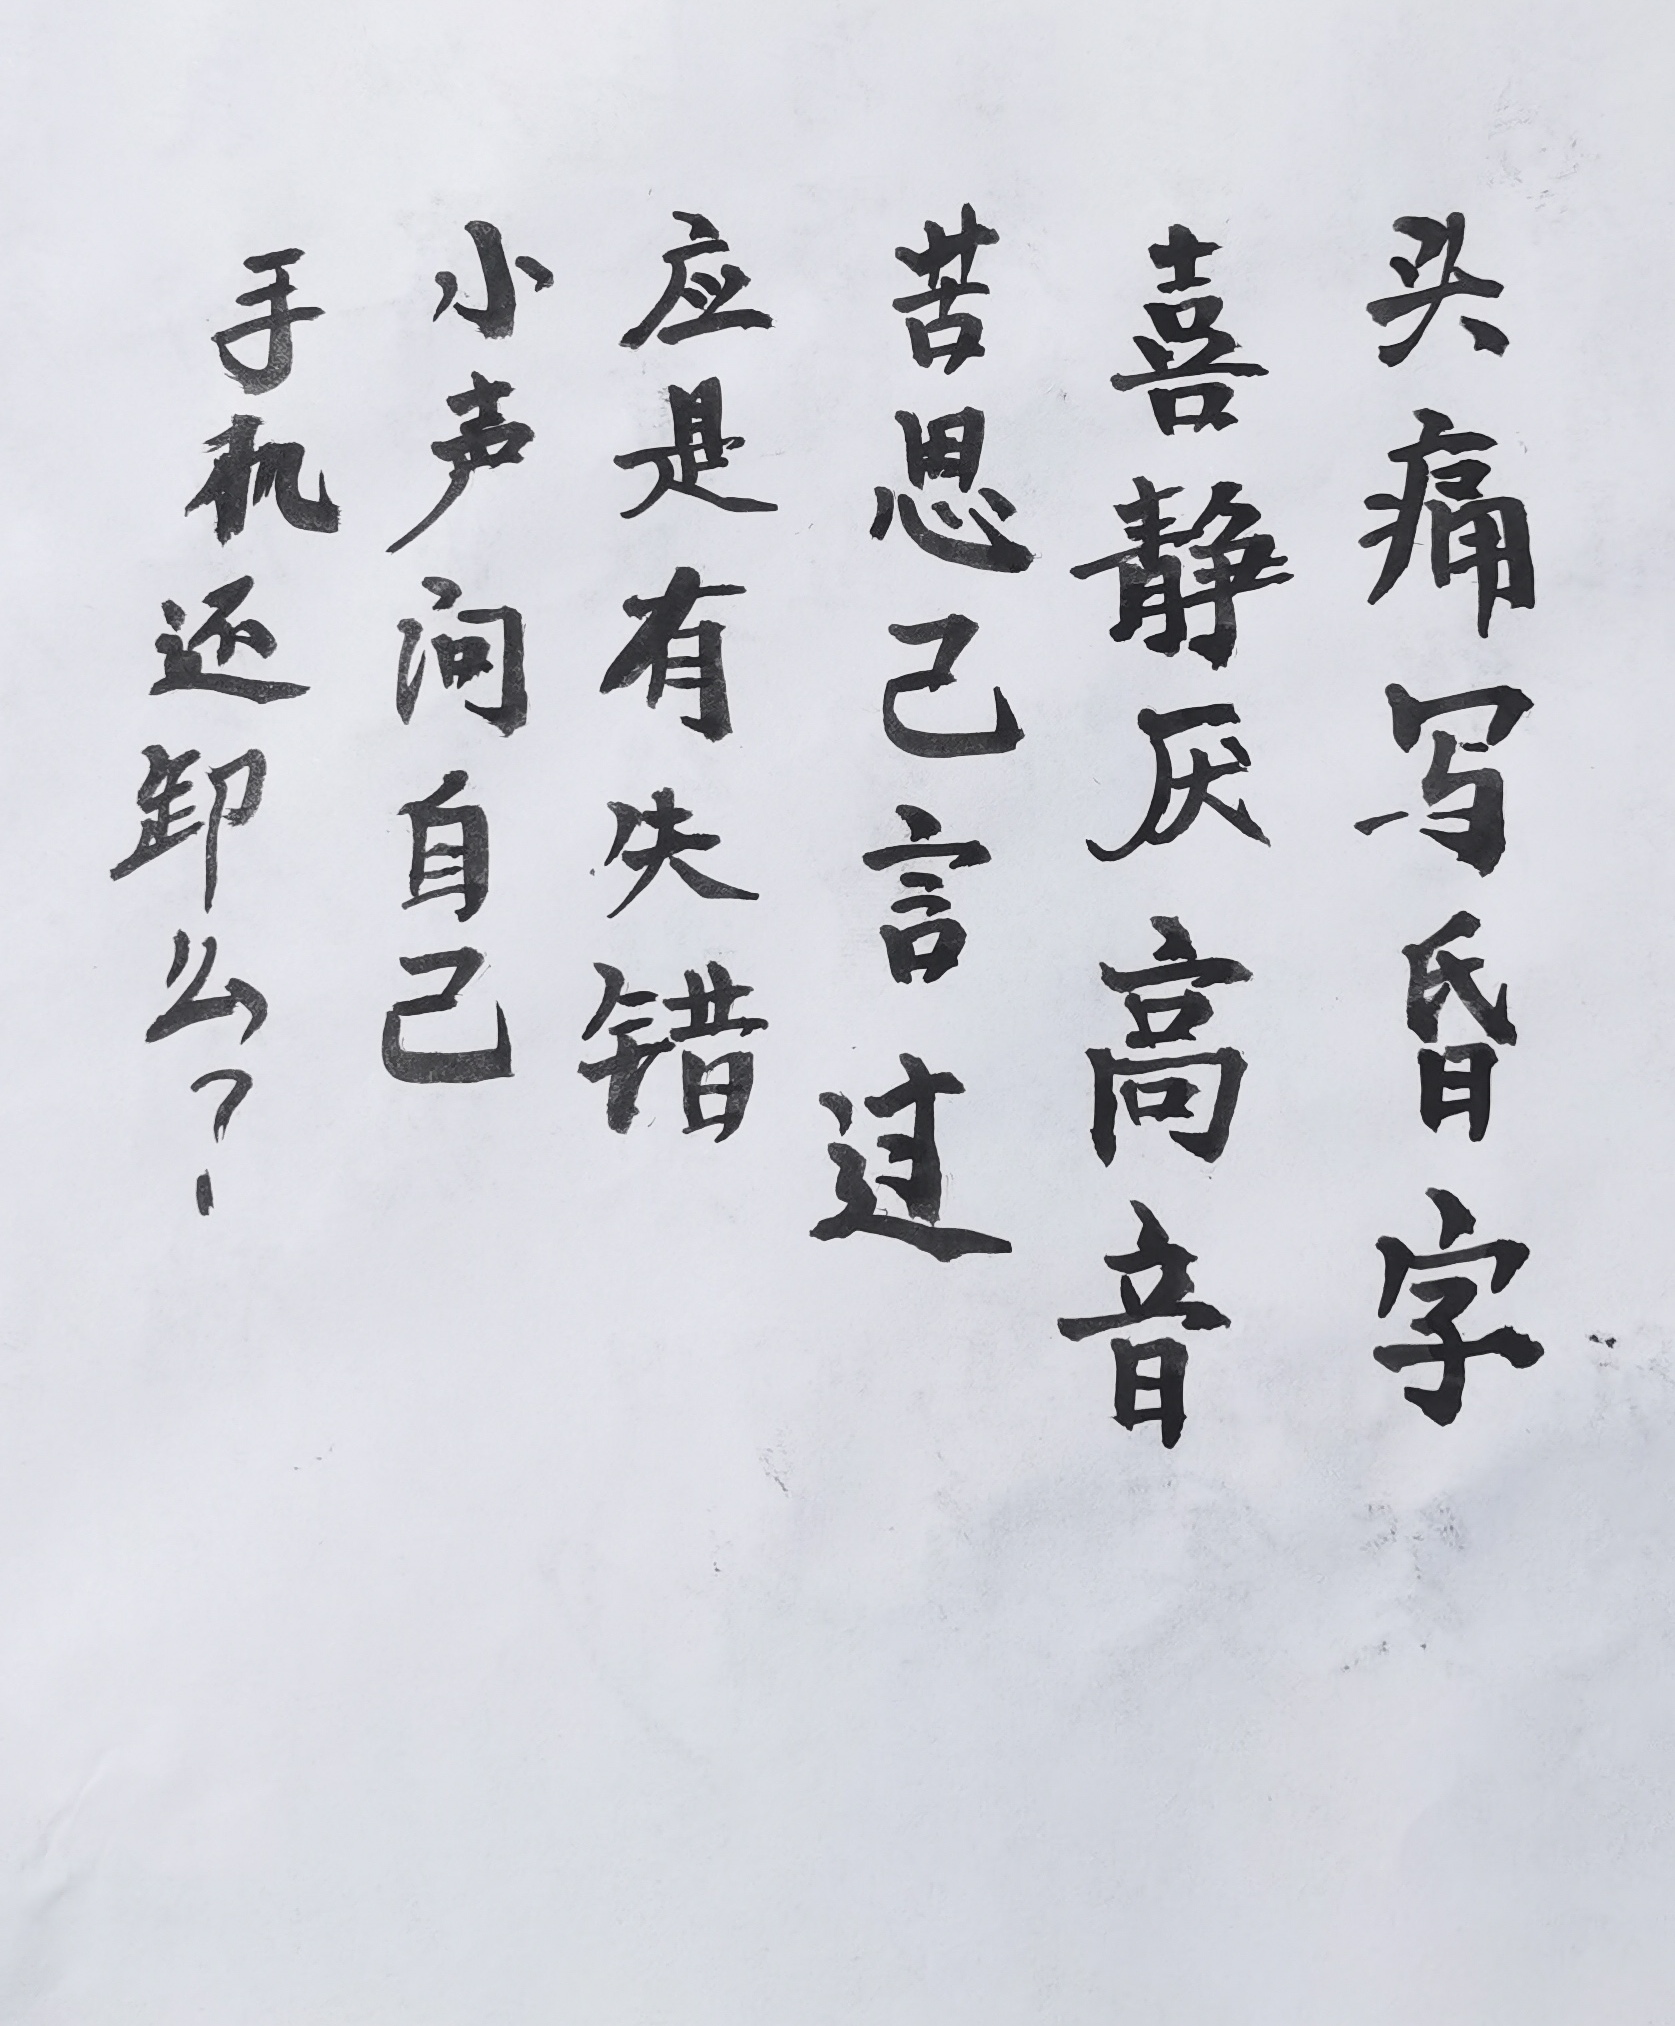 头痛写昏字
喜静厌高音
苦思己言过
应是有失错
小声问自己
手机还卸么？